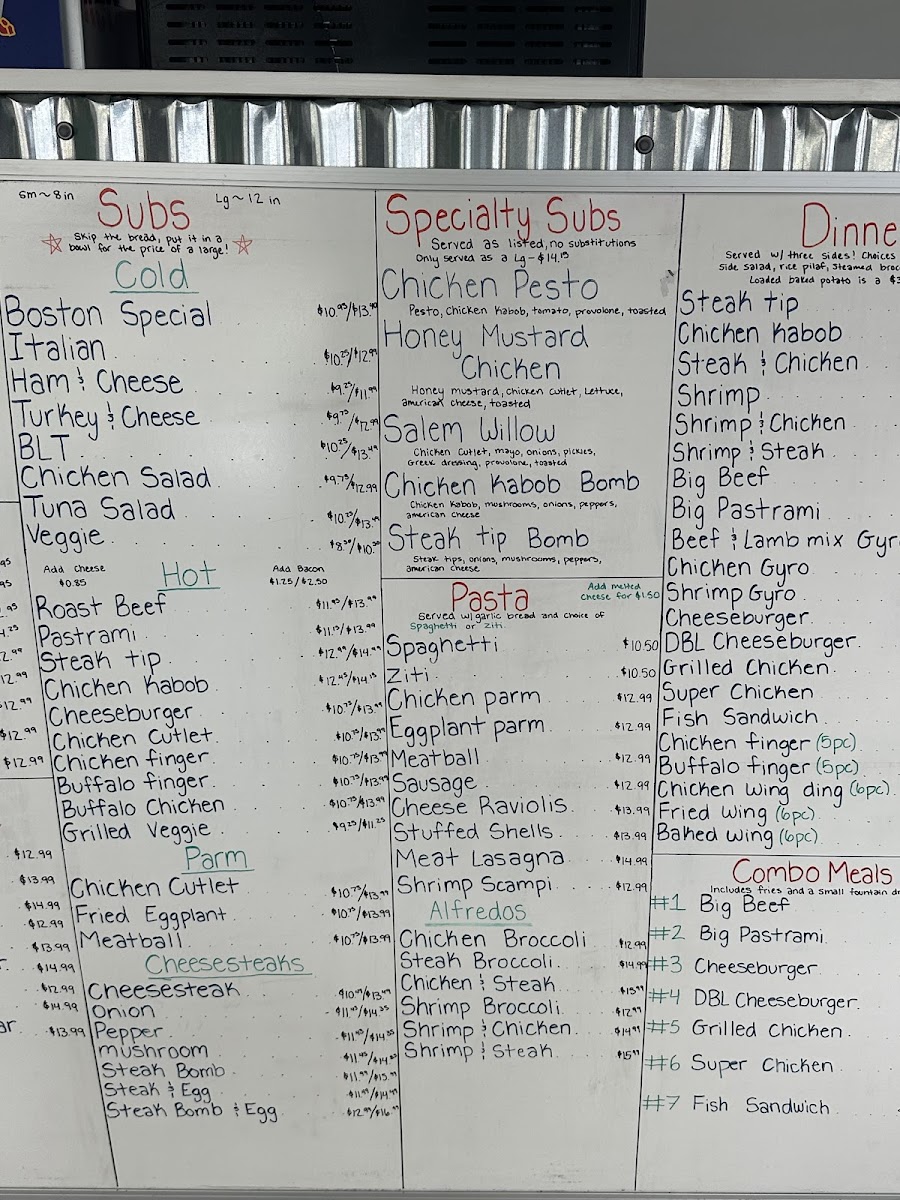 sm~8in
Lg~12 in
Subs
Skip the bread, put it in a
bowl for the price of a large!
Cold
Boston Special
Italian $10.25/$12.99
Ham & Cheese $9.25/$11.99
Turkey & Cheese $9.75/$12.99
BLT $10.25/$13.49
Chicken Salad $9.75/$12.99
Tuna Salad
Veggie
Add Cheese
$0.85
Hot
Add Bacon
$1.25/$2.50
Roast Beef
Pastrami
Steak tip
Chicken Kabob
Cheeseburger $10.75/$13.99
Chicken Cutlet $10.75/$13.99
Chicken finger $10.75/$13.99
Buffalo finger $10.75/$13.99
Buffalo Chicken $10.75/$13.99
Grilled Veggie $9.25/$11.25
Parm
Chicken Cutlet $10.75/$13.99
Fried Eggplant $10.75/$13.99
Meatball $10.75/$13.99
Cheesesteaks
Cheesesteak
Onion
Pepper
mushroom
Steak Bomb
Steak & Egg
Steak Bomb & Egg
Specialty Subs
Served as listed, no substitutions
Only served as a Lg-
Chicken Pesto
Pesto, Chicken Kabob, tomato, provolone, toasted
Honey Mustard
Chicken
Honey mustard, chicken cutlet, lettuce,
american cheese, toasted
Salem Willow
Chicken cutlet, mayo, onions, pickles,
Greek dressing, provolone, toasted
Chicken Kabob Bomb
Chicken Kabob, mushrooms, onions, peppers,
american cheese
Steak tip Bomb
Steak tips, onions, mushrooms, peppers,
american cheese
Pasta
Add melted
cheese for $1.50
Served w/ garlic bread and choice of
Spaghetti or ziti.
Spaghetti $10.50
Ziti $10.50
Chicken parm $12.99
Eggplant parm $12.99
Meatball $12.99
Sausage $12.99
Cheese Raviolis $13.99
Stuffed Shells $13.99
Meat Lasagna $14.99
Shrimp Scampi $12.99
Alfredos
Chicken Broccoli $12.99
Steak Broccoli $14.99
Chicken & Steak $15.99
Shrimp Broccoli $12.99
Shrimp & Chicken $14.99
Shrimp & Steak $15.99
Dinne
Served w/ three sides! Choices
Side salad, rice pilaf, steamed broc
Loaded baked potato is a $
Steak tip
Chicken Kabob
Steak & Chicken
Shrimp
Shrimp & Chicken
Shrimp & Steak
Big Beef
Big Pastrami
Beef & Lamb mix Gyr
Chicken Gyro
Shrimp Gyro
Cheeseburger
DBL Cheeseburger
Grilled Chicken
Super Chicken
Fish Sandwich
Chicken finger (5pc)
Buffalo finger (5pc)
Chicken wing ding (6pc)
Fried wing (6pc)
Baked wing (6pc)
Combo Meals
Includes fries and a small fountain dr
#1 Big Beef
#2 Big Pastrami
#3 Cheeseburger
#4 DBL Cheeseburger
#5 Grilled Chicken
#6 Super Chicken
#7 Fish Sandwich
$12.99
$12.99
$12.99
$13.99
$14.99
$12.99
$13.99
$14.99
$12.99
$14.99
$13.99